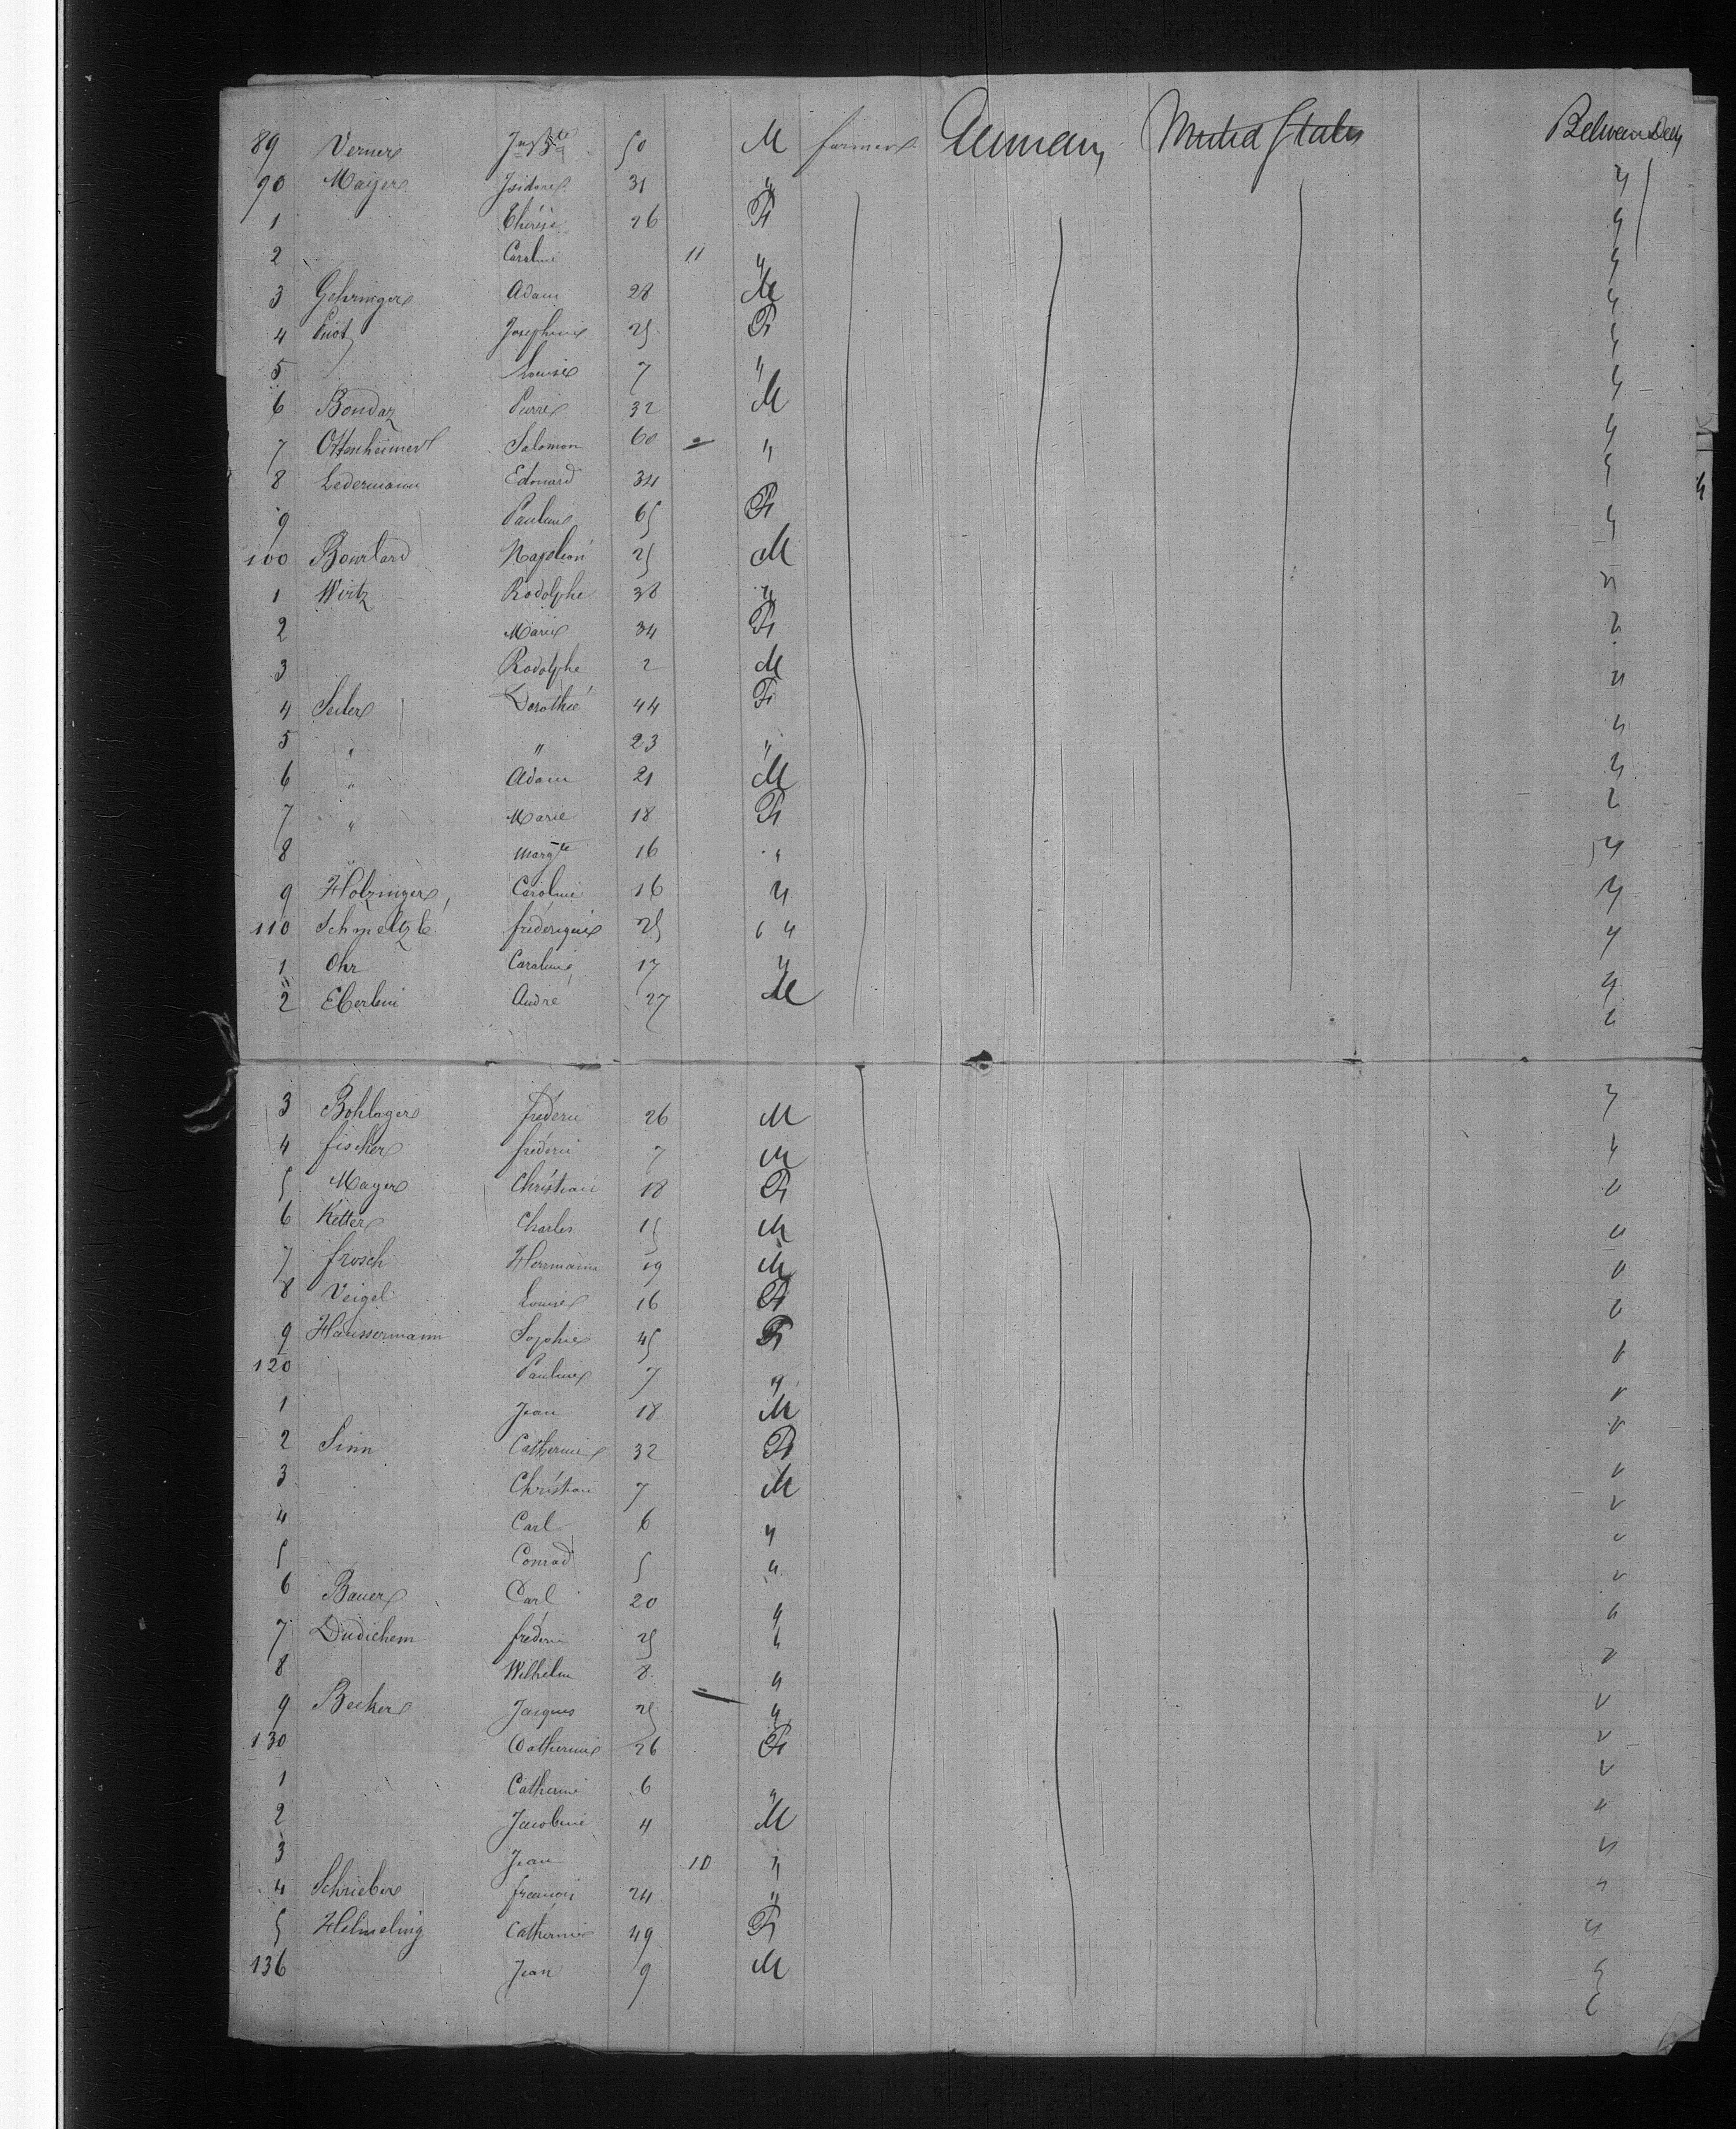 89 Verner Jn Bte 50 M farmer Germany United States Between Decks
90 Mayer Isidore 31 "
1 Thérèse 26 Fe "
2 Caroline 11 " "
3 Gehringer Adam 28 M "
4 Josephine 25 Fe "
5 Louise 7 " "
6 Bondaz Pierre 32 M "
7 Ottenheimer Salomon 60 " "
8 Ledermann Edouard 34 "
9 Pauline 65 Fe "
100 Bourlard Napoléon 25 M "
1 Wirtz Rodolphe 38 " "
2 Marie 34 Fe "
3 Rodolphe 2 M "
4 Seiler Dorothée 44 Fe "
5 " " 23 " "
6 " Adam 21 M "
7 " Marie 18 Fe "
8 " Margte 16 " "
9 Holzinger Caroline 16 " "
110 Schmeltzlé frédérique 25 " "
1 Ohr Caroline 17 " "
2 Eberlein André 27 M "
3 Bohlager frédéric 26 M "
4 fischer frédéric 7 M "
5 Mayer Christian 18 Fe "
6 Ketter Charles 15 M "
7 frosch Herrmann 19 M "
8 Veigel Louise 16 Fe "
9 Haussermann Sophie 45 Fe "
120 Pauline 7 " "
1 Jean 18 M "
2 Sinn Catherine 32 Fe "
3 Christian 7 M "
4 Carl 6 " "
5 Conrad 5 " "
6 Bauer Carl 20 " "
7 Dudichem frédéric 25 " "
8 Wilhelm 8 " "
9 Becker Jacques 25 " "
130 Catherine 26 Fe "
1 Catherine 6 " "
2 Jacobine 4 M "
3 Jean 10 " "
4 Schrieber francois 24 " "
5 Helmeling Catherine 49 Fe "
136 Jean 9 M "